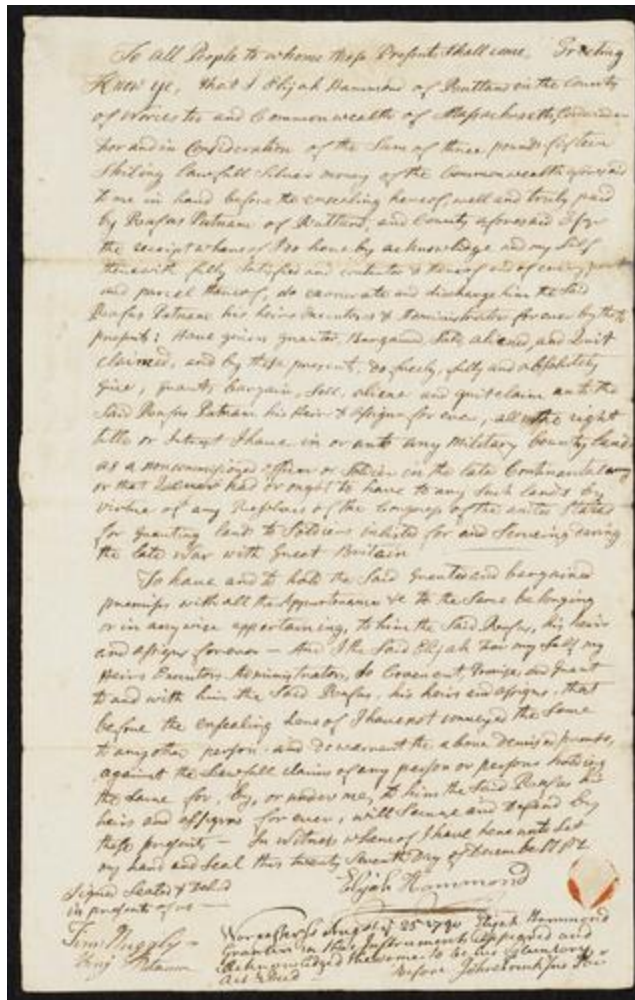 To all People to whome these Presents shall come, Greeting
Know ye, that I Elijah Hammond of Rutland in the County
of Worcester and Commonwealth of Massachusetts,
for and in Consideration of the Sum of three pounds fifteen
Shiling Lawfull Silver money of the Commonwealth aforesaid
to me in hand before the ensealing hereof, well and truly paid
by Rufus Putnam of Rutland, and County aforesaid Esqr
the receipt whereof I do hereby acknowledge and my Self
therewith fully satisfied and contented & thereof and of every
and parcel thereof, do exonerate and discharge him the Said
Rufus Putnam his heirs Executors & Administrators for ever by these
presents: Have given granted, Bargained Sold, aliened, and Quit
claimed, and by these present, do, freely, fully and absolutely
Give, grant, bargain, Sell, aliene and quitclaim unto the
Said Rufus Putnam his Heirs & assigns for ever, all the right
title or Interest I have in or unto any Military bounty Lands
as a noncommissioned officer or Soldier in the late Continental army
or that I ever had or ought to have to any Such lands by
virtue of any Resolves of the Congress of the united States
for granting land to Soldiers inlisted for and Serveing during
the late War with Great Britain
To have and to hold the Said Granted and bargained
premises with all the Appurtenances to the Same belonging
or in anywise appertaining, to him the Said Rufus, his heirs
and assigns forever — And I the Said Elijah for my Self my
Heirs Executors Administrators, do Covenant, Promise, and Grant
to and with him the Said Rufus, his heirs and assigns, that
before the ensealing hereof I have not conveyed the Same
to any other person and do warrent the above demised premises,
against the Lawfull claims of any person or persons holding
the Same for, by, or under me, to him the Said Rufus his
heirs and assigns for ever, will Secure and Defend by
these presents — In witness whereof I have hereunto Set
my hand and Seal this twenty Seventh Day of December
Elijah Hammond
Signed Sealed & Delivd
in presents of us —
Benj Putnam
Worcester Ss August 25 1790 Elijah Hammond
Grantor in this Instrument appeared and
Acknowledged the same to be his voluntary
act & Deed before